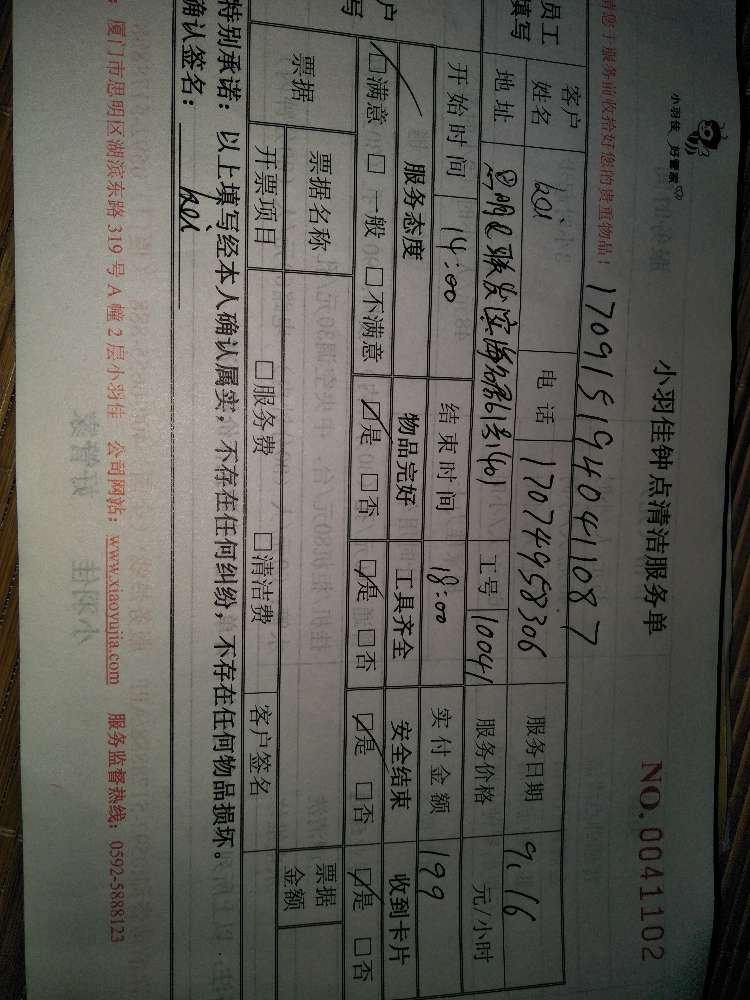 小羽佳 好管家
小羽佳钟点清洁服务单
NO.0041102
请您于服务前收拾好您的贵重物品！
1709151940411087
员工
填写
客户
姓名
电话 17074958306
服务日期 9.16
地址
工号 10041
服务价格 元/小时
开始时间 14:00
结束时间 18:00
实付金额 199
户
写
服务态度 物品完好 工具齐全 安全结束 收到卡片
☑满意 □一般 □不满意 ☑是 □否 ☑是 □否 ☑是 □否 ☑是 □否
票据
票据名称
票据
金额
开票项目 □服务费 □清洁费 客户签名
特别承诺：以上填写经本人确认属实，不存在任何纠纷，不存在任何物品损坏。
确认签名：
：厦门市思明区湖滨东路 319 号 A 幢 2 层小羽佳 公司网站：www.xiaoyujia.com 服务监督热线：0592-5888123